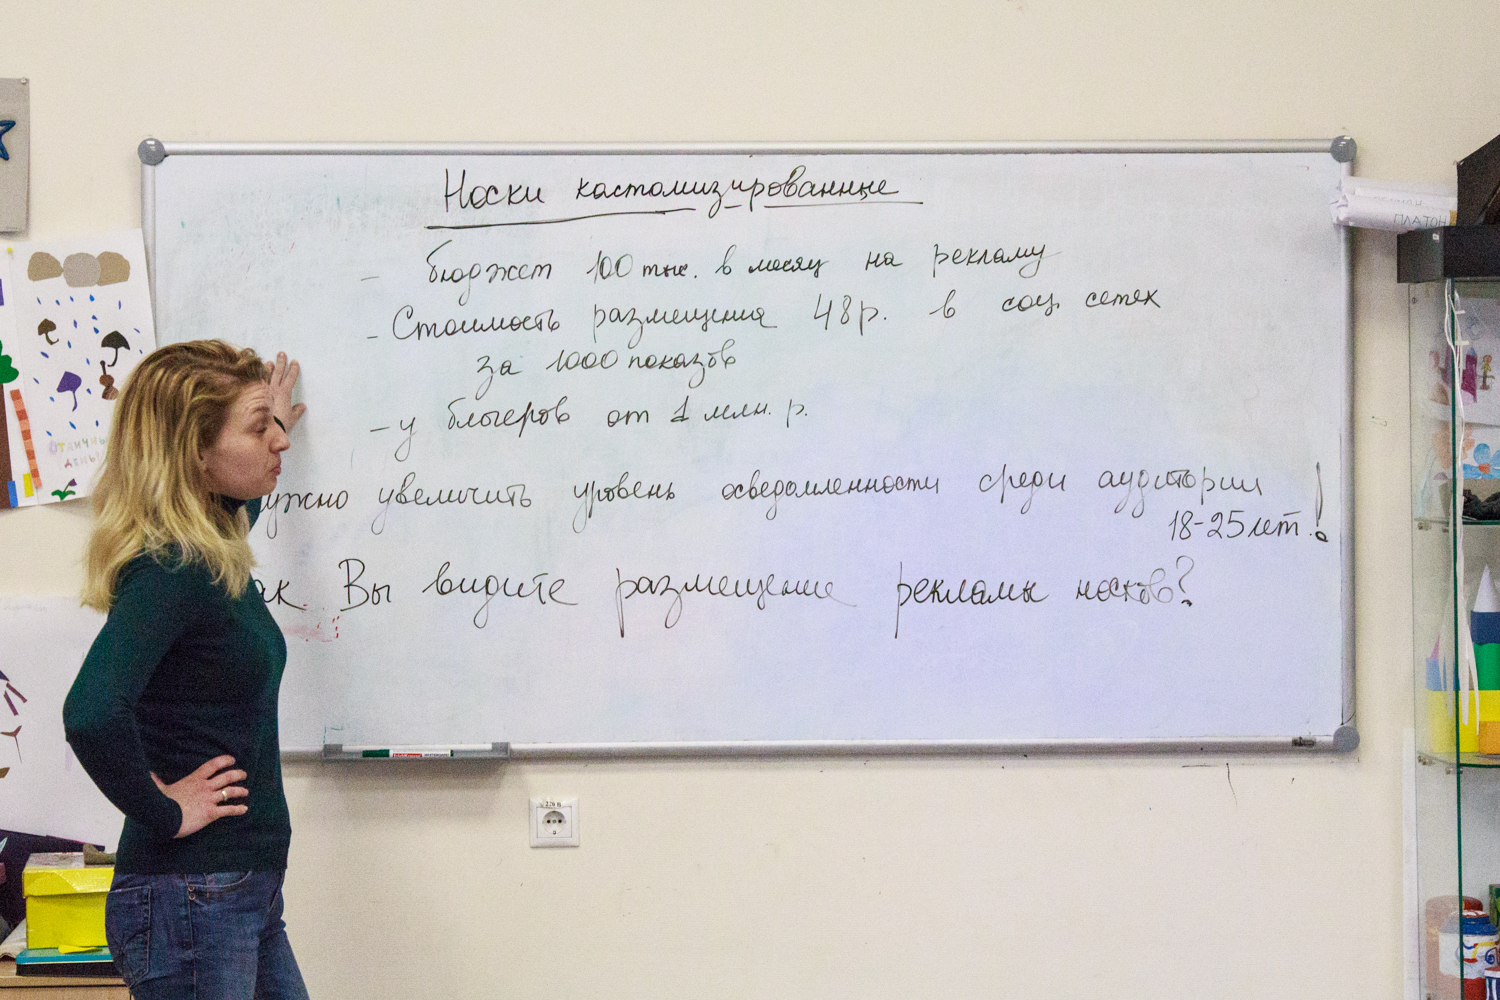 Носки кастомизированные
- бюджет 100 тыс. в месяц на рекламу
- Стоимость размещения 48р. в соц. сетях
за 1000 показов
- у блогеров от 1 млн. р.
ужно увеличить уровень осведомленности среди аудитории
18-25 лет!
ак Вы видите размещение рекламы носков?
ПЛАТОН
Отличный
день!
220 В